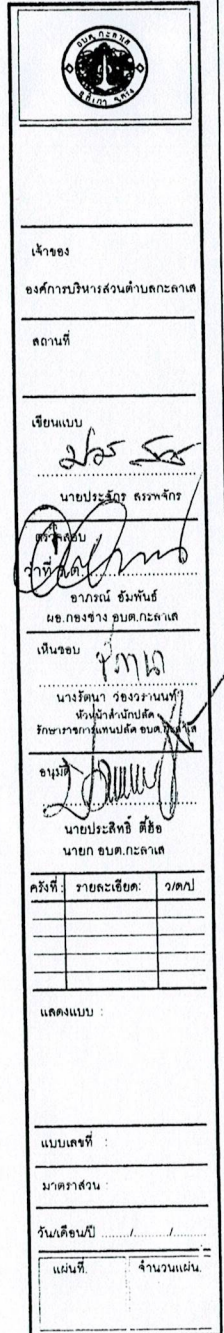 อบต.กะลาเส
อ.สิเกา จ.ตรัง
เจ้าของ
องค์การบริหารส่วนตำบลกะลาเส
สถานที่
เขียนแบบ
นายประจักร สรรพจักร
ตรวจสอบ
ว่าที่ ร.ต.
อาภรณ์ อัมพันธ์
ผอ.กองช่าง อบต.กะลาเส
เห็นชอบ
นางรัตนา ว่องวรานนท์
หัวหน้าสำนักปลัด
รักษาราชการแทนปลัด อบต.กะลาเส
อนุมัติ
นายประสิทธิ์ ตี้ฮ้อ
นายก อบต.กะลาเส
ครั้งที่: รายละเอียด: ว/ด/ป
แสดงแบบ :
แบบเลขที่ :
มาตราส่วน :
วัน/เดือน/ปี ....../....../......
แผ่นที่. จำนวนแผ่น.